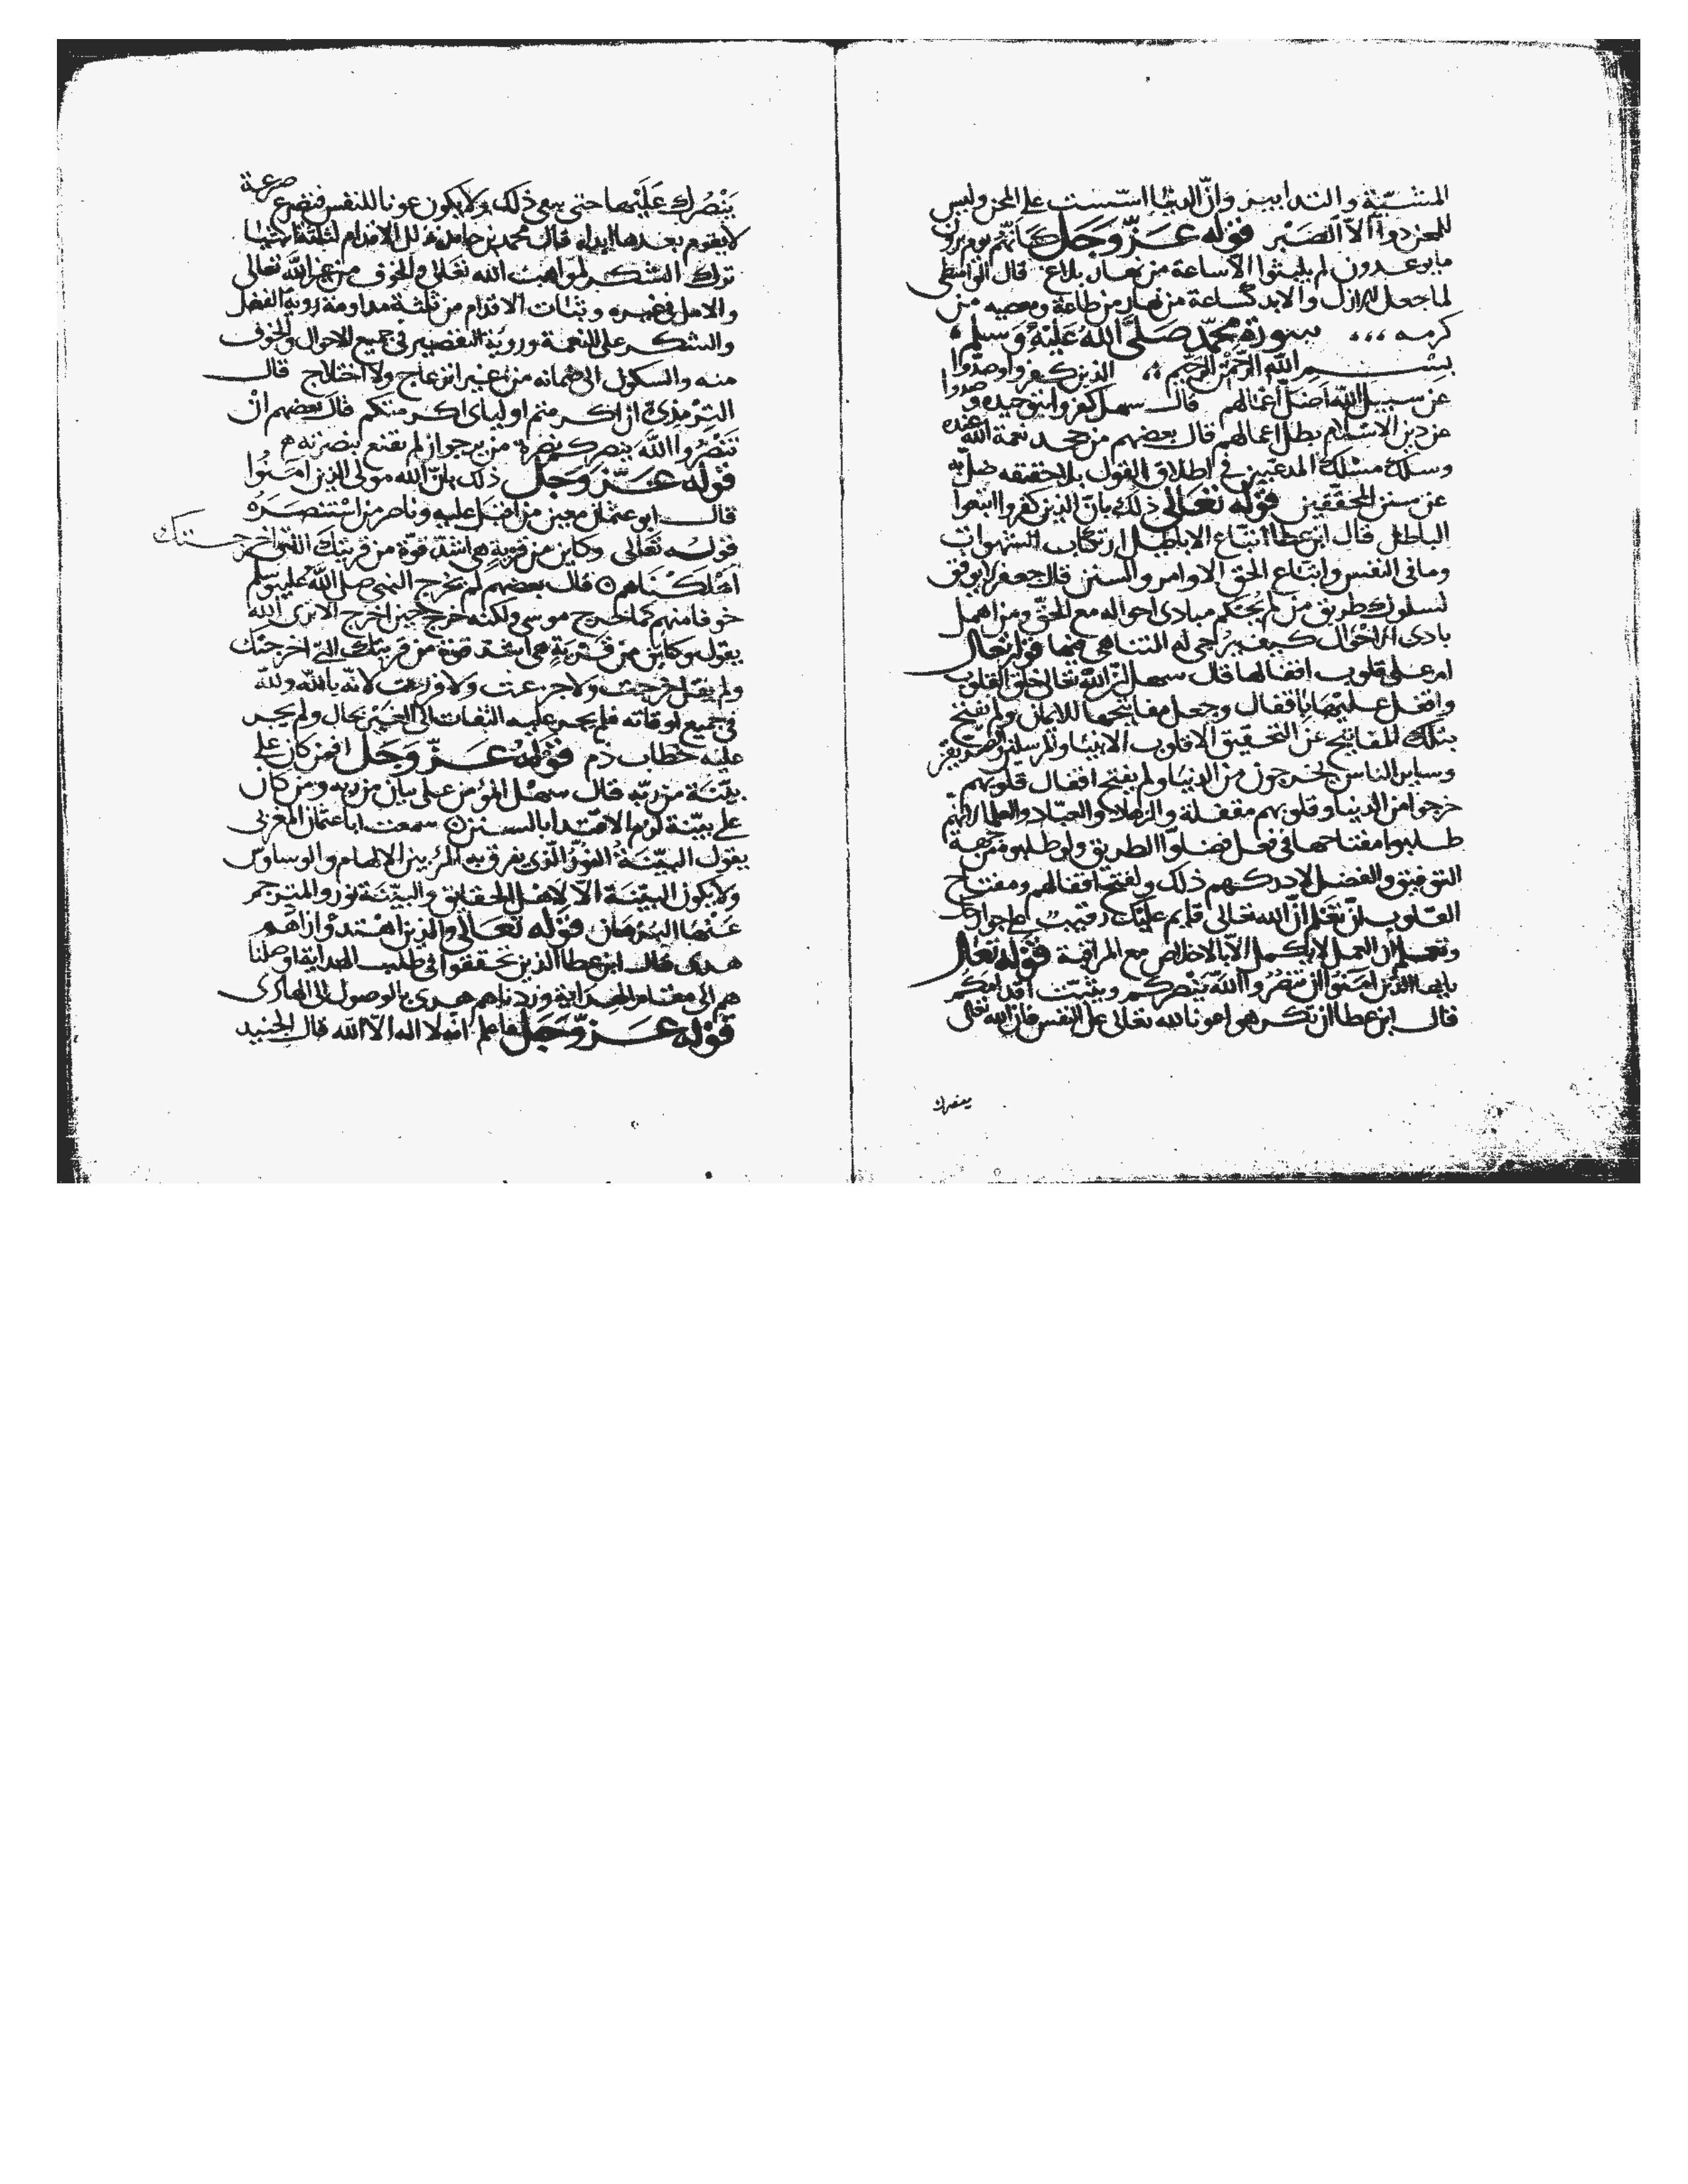 المشيّة والتدابير وانّ الدنيا اسّست على المحن وليس
للمحن دوآ الّا الصبر قوله عزّ وجلّ كانّهم يوم يرون
ما يوعدون لم يلبثوا الّا ساعة من نهار بلاغ قال الواسطى
لما جعل للازل والابد كساعة من نهار من طاعة ومعصيه من
كرمه ،،، سورة محمّد صلّى الله عليه وسلم
بسم الله الرحمن الرحيم ،، الذين كفروا وصدّوا
عن سبيل الله اضلّ اعمالهم قال سهل كفروا بتوحيده وصدوا
عن دين الاسلام بطل اعمالهم قال بعضهم من جحد نعمة الله عنده
وسلك مسلك المدعيين فى اطلاق القول بلا حقيقه ضلّ به
عن سنن المحقّقين قوله تعالى ذلك بانّ الذين كفروا اتبعوا
الباطل قال ابن عطا اتباع الاباطيل ارتكاب الشهوات
وما فى النفس واتباع الحق الاوامر والسنن قال جعفر لا يوفق
لسلوك طريق من لم يحكم مبادى احواله مع الحقّ ومن اهمل
بادى الاحوال كيف يرجى له التناهى فيها قوله تعالى
ام على قلوب اقفالها قال سهل انّ الله تعالى خلق القلوب
واقفل عليها باقفال وجعل مفاتيحها للايمان ولم يفتح
بتلك المفاتيح عن التحقيق الا قلوب الانبيا والمرسلين والصديقين
وساير الناس يخرجون من الدنيا ولم يفتح اقفال قلوبهم
خرجوا من الدنيا وقلوبهم مقفلة والزهاد والعبّاد والعلما لانّهم
طلبوا مفتاحها فى فعل فضلوّا الطريق ولو طلبوه من جهة
التوفيق والفضل لادركهم ذلك ولفتح اقفالهم ومفتاح
القلوب ان تعلم انّ الله تعالى قايم عليك رقيب على جوارحك
وتعلم أنّ العمل لا يكمل الّا بالاخلاص مع المراقبة قوله تعالى
يايها الذين امنوا ان تنصروا الله ينصركم ويثبّت اقدامكم
قال ابن عطا ان تكرهوا عونا لله تعالى على النفس فان الله تعالى
ينصرك
ينصرك عليها حتى ذلك ولا يكون عونا للنفس فتصرع صرعة
لا يقوم بعدها ابدا قال محمد بن حامد زلل الاقدام لثلثة اشيا
ترك الشكر لمواهب الله تعالى والخوف من غير الله تعالى
والامل فى غيره وثبات الاقدام من ثلثة مداومة روية الفضل
والشكر على النعمة وروية التقصير فى جميع الاحوال والخوف
منه والسكون الى ضمانه من غير انزعاج ولا اختلاج قال
الترمذىّ ان اكرمتم اوليأى اكرمتكم قال بعضهم ان
تنصروا الله ينصركم نصرة من يرجوا ان لم يقنع بنصرته هم
قوله عزّ وجلّ ذلك بانّ الله مولى الذين امنوا
قال ابو عثمان معين من اقبل عليه وناصر من استنصره
قوله تعالى وكاين من قرية هى اشدّ قوّة من قريتك التى اخرجتك
اهلكناهم قال بعضهم لم يخرج النبى صلى الله عليه وسلم
خوفا منهم كما خرج موسى ولكنه خرج حين اخرج الا ترى الله
يقول وكاين من قرية هى اشد قوّة من قريتك التى اخرجتك
ولم يقل خرجت ولا جزعت ولا فزعت لانّه بالله ولله
فى جميع اوقاته فلم يجر عليه التفات الى الغير بحال ولم يجر
عليه خطاب ذم قوله عزّ وجلّ افمن كان على
بيّنة من ربّه قال سهل المؤمن على بيان من ربه ومن كان
على بيّنة لزم الاقتدا بالسنن سمعت ابا عثمان المغربى
يقول البيّنة النور الّذى يفرق به المرء بين الالهام والوساوس
ولا يكون البيّنة الّا لاهل الحقايق والبيّنة نور والمترجم
عنها البرهان قوله تعالى والذين اهتدوا زادهم
هدى قال ابن عطا الذين تحققوا فى طلب الهداية اوصلناهم
هم الى مقام الهداية وزدناهم هدى بالوصول الى الهادى
قوله عزّ وجلّ فاعلم انه لا اله الّا الله قال الجنيد